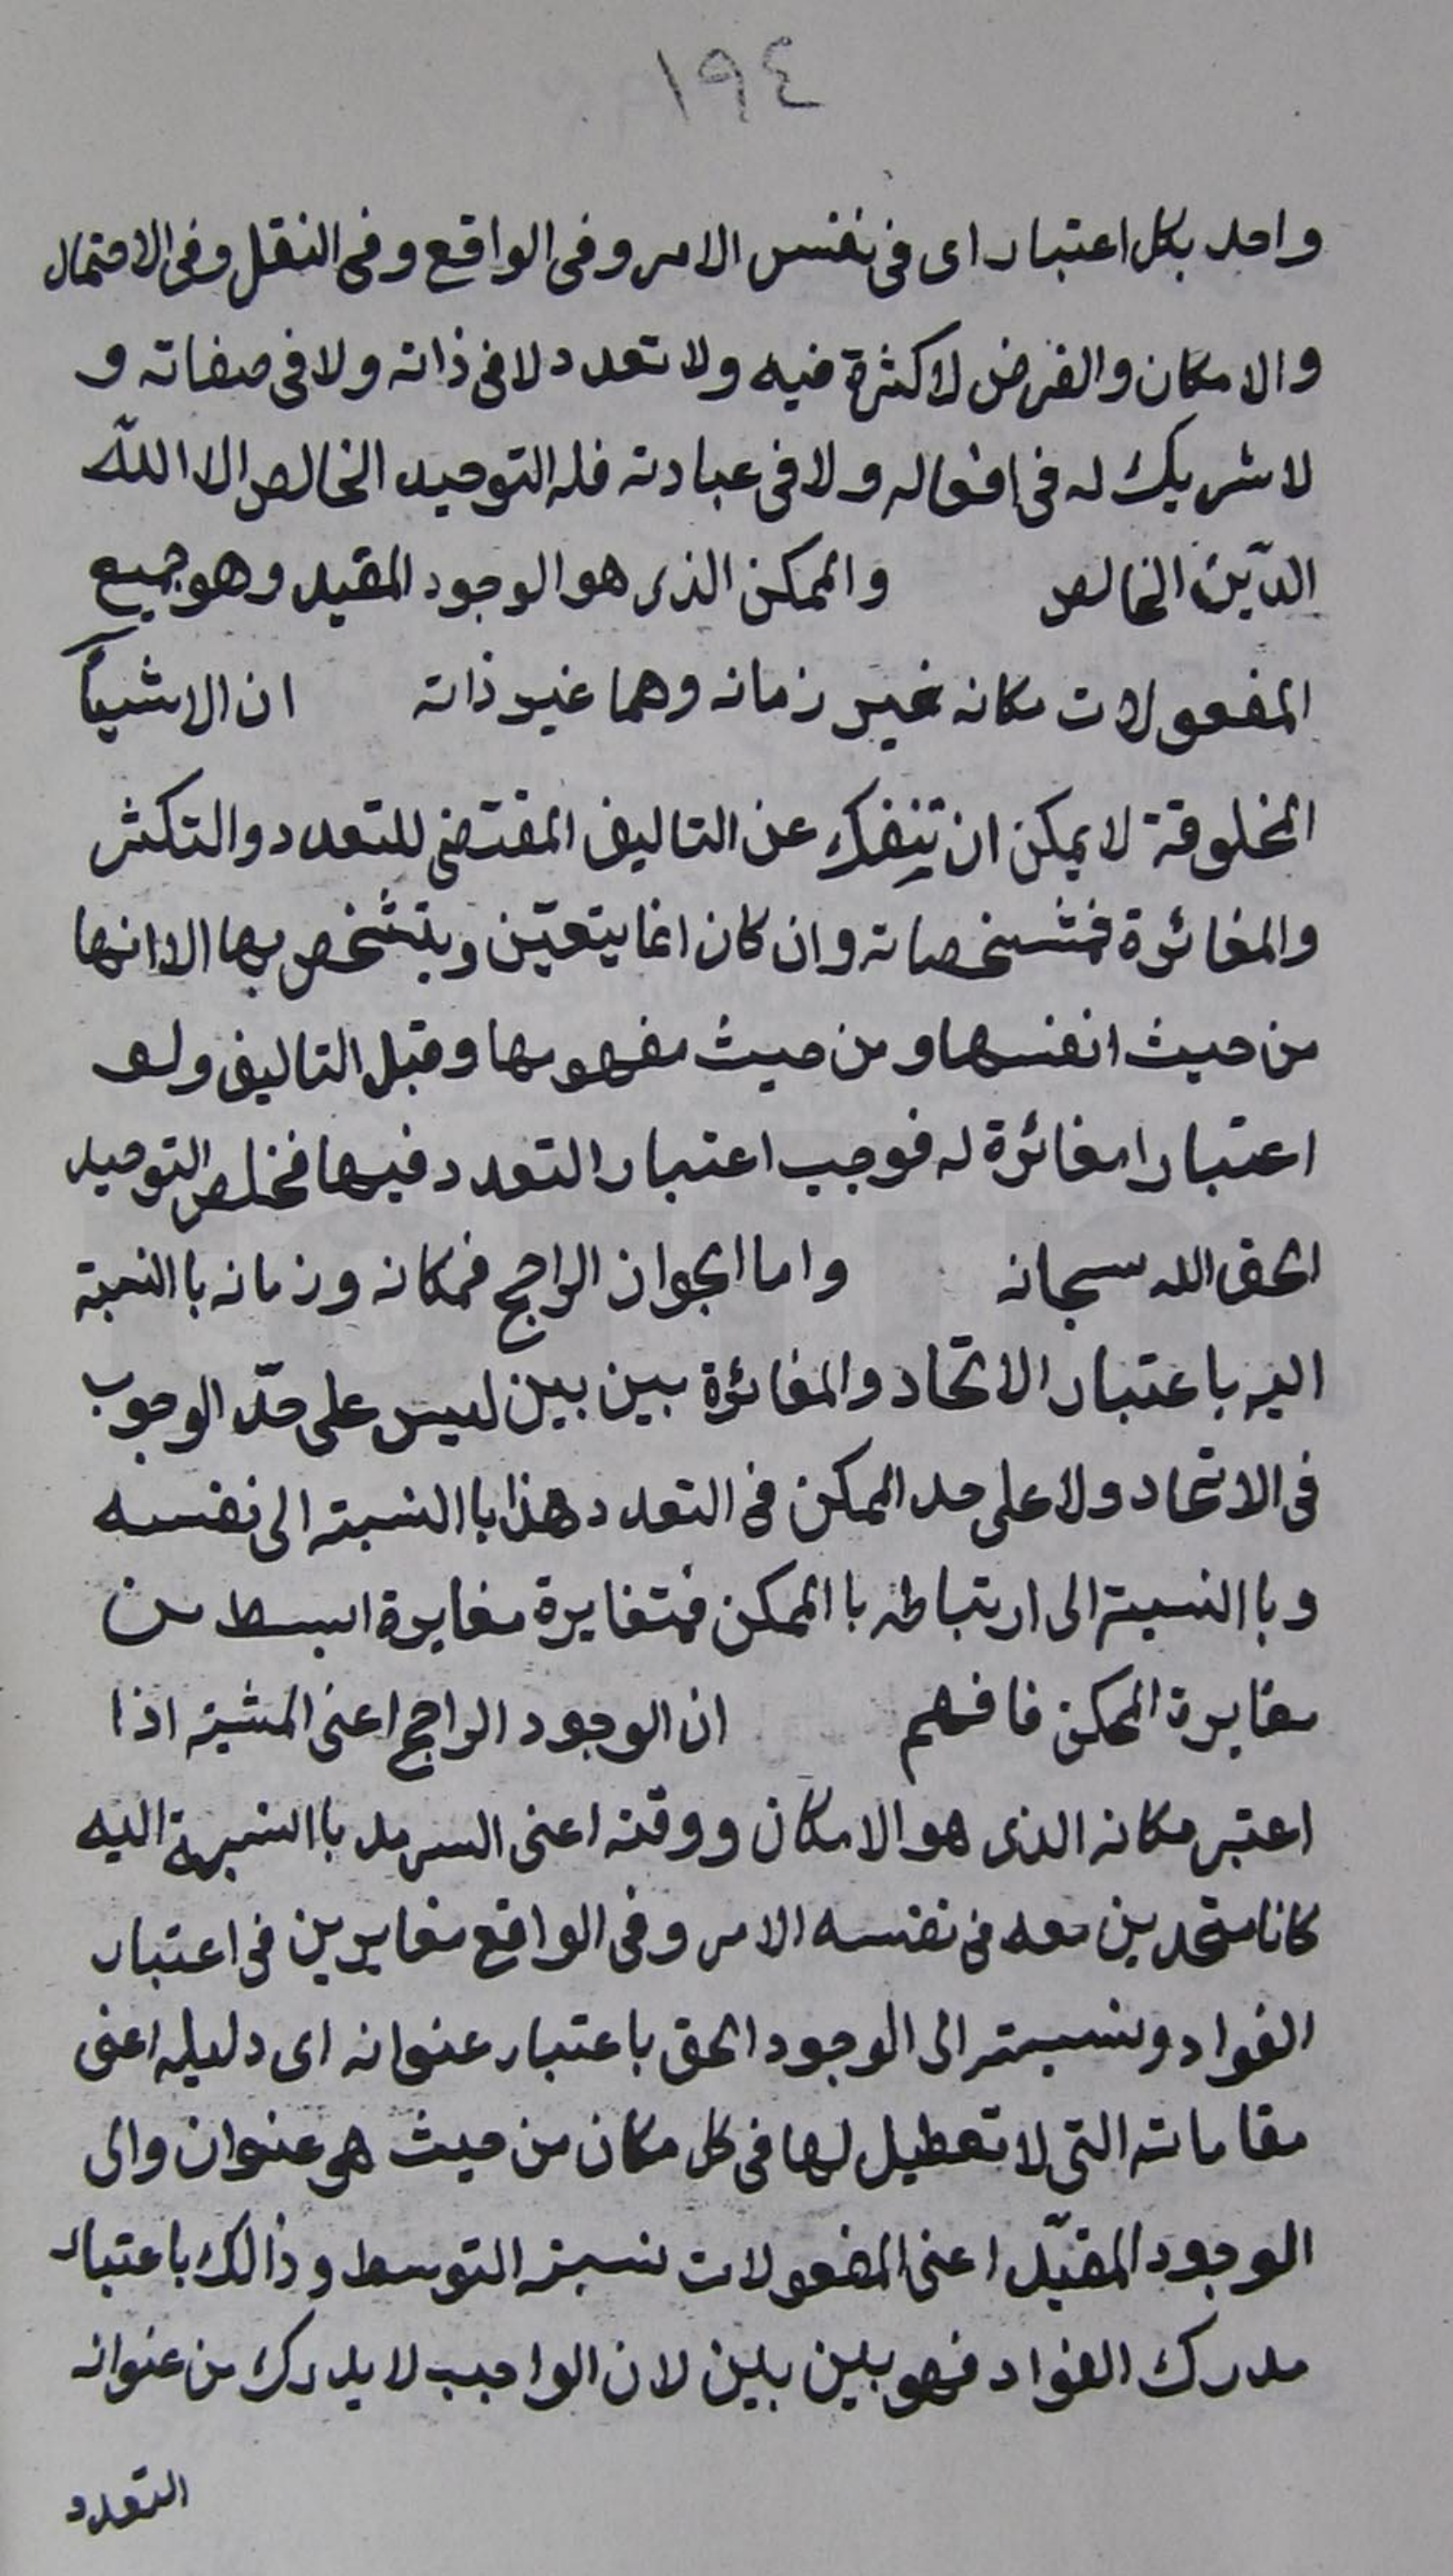 ١٩٤
واحد بكل اعتبار اى فى نفس الامر وفى الواقع وفى النقل وفى الاحتمال
والامكان والفرض لاكثرة فيه ولا تعدد لا فى ذاته ولا فى صفاته و
لا شريك له فى افعاله ولا فى عبادته فله التوحيد الخالص الا الله
الدّين الخالص والممكن الذى هو الوجود المقيد وهو جميع
المفعولات مكانه غير زمانه وهما غير ذاته ان الاشيآ
المخلوقة لا يمكن ان تنفك عن التاليف المقتضى للتعدد والتكثر
والمغائرة فمشخصاته وان كان انما يتعيّن ويتشخص بها الا انها
من حيث انفسها ومن حيث مفهومها وقبل التاليف ولو
اعتبارا مغائرة له فوجب اعتبار التعدد فيها فخلص التوحيد
الحق الله سبحانه واما الجواز الراجح فمكانه وزمانه با النسبة
اليه باعتبار الاتحاد والمغائرة بين بين ليس على حدّ الوجوب
فى الاتحاد ولا على حد الممكن فى التعدد هذا با النسبة الى نفسه
وبا النسبة الى ارتباطه با الممكن فمتغايرة مغايرة ابسط من
مغايرة الممكن فافهم ان الوجود الراجح اعنى المشية اذا
اعتبر مكانه الذى هو الامكان ووقته اعنى السرمد با النسبة اليه
كانا متحدين معه فى نفسه الامر وفى الواقع مغايرين فى اعتبار
الفواد ونسبته الى الوجود الحق باعتبار عنوانه اى دليله اعنى
مقاماته التى لا تعطيل لها فى كل مكان من حيث هو عنوان والى
الوجود المقيّد اعنى المفعولات نسبة التوسط وذالك باعتبار
مدرك الفواد فهو بين بين لان الواجب لا يدرك من عنوانه
التعدد